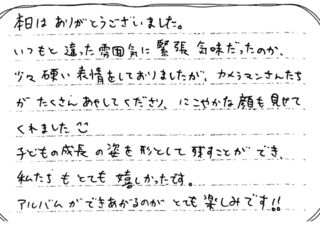 本日は ありがとうございました。
いつもと 違った 雰囲気に 緊張 気味だったのか、
少々 硬い 表情をしておりましたが、カメラマンさんたち
が たくさん あやしてくださり、にこやかな 顔も 見せて
くれました
子どもの成長 の 姿を 形として 残すことが でき、
私たち も とても 嬉しかったです。
アルバム ができあがるのが とても 楽しみです!!